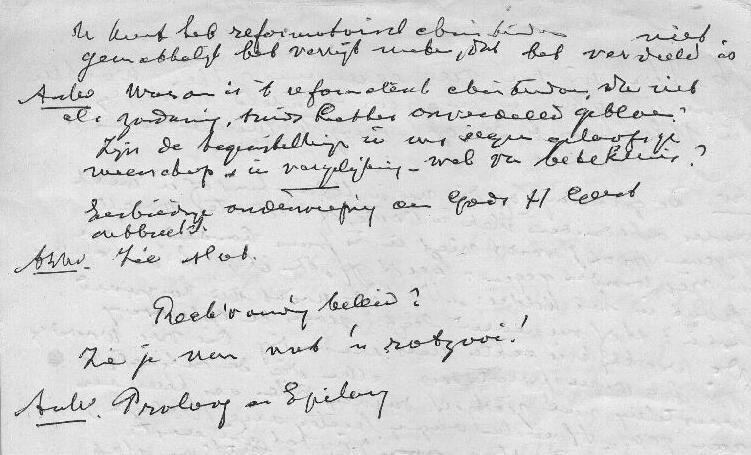 U kunt het reformatorisch christendom niet
gemakkelijk het verwijt maken, dat het verdeeld is
Antw. Waarom is 't reformator. christendom, dat niet
als zoodanig, sinds Luther onverdeeld gebleven?
Zijn de tegenstellingen in uw eigen geloofsge
meenschap, in vergelijking - wel van betekenis?
Eerbiedige onderwerping aan Gods H Geest
ontbreekt.
Antw. Zie slot.
Rechtvaardig beleid?
Zie je nou wat 'n rotzooi!
Antw. Proloog en Epiloog